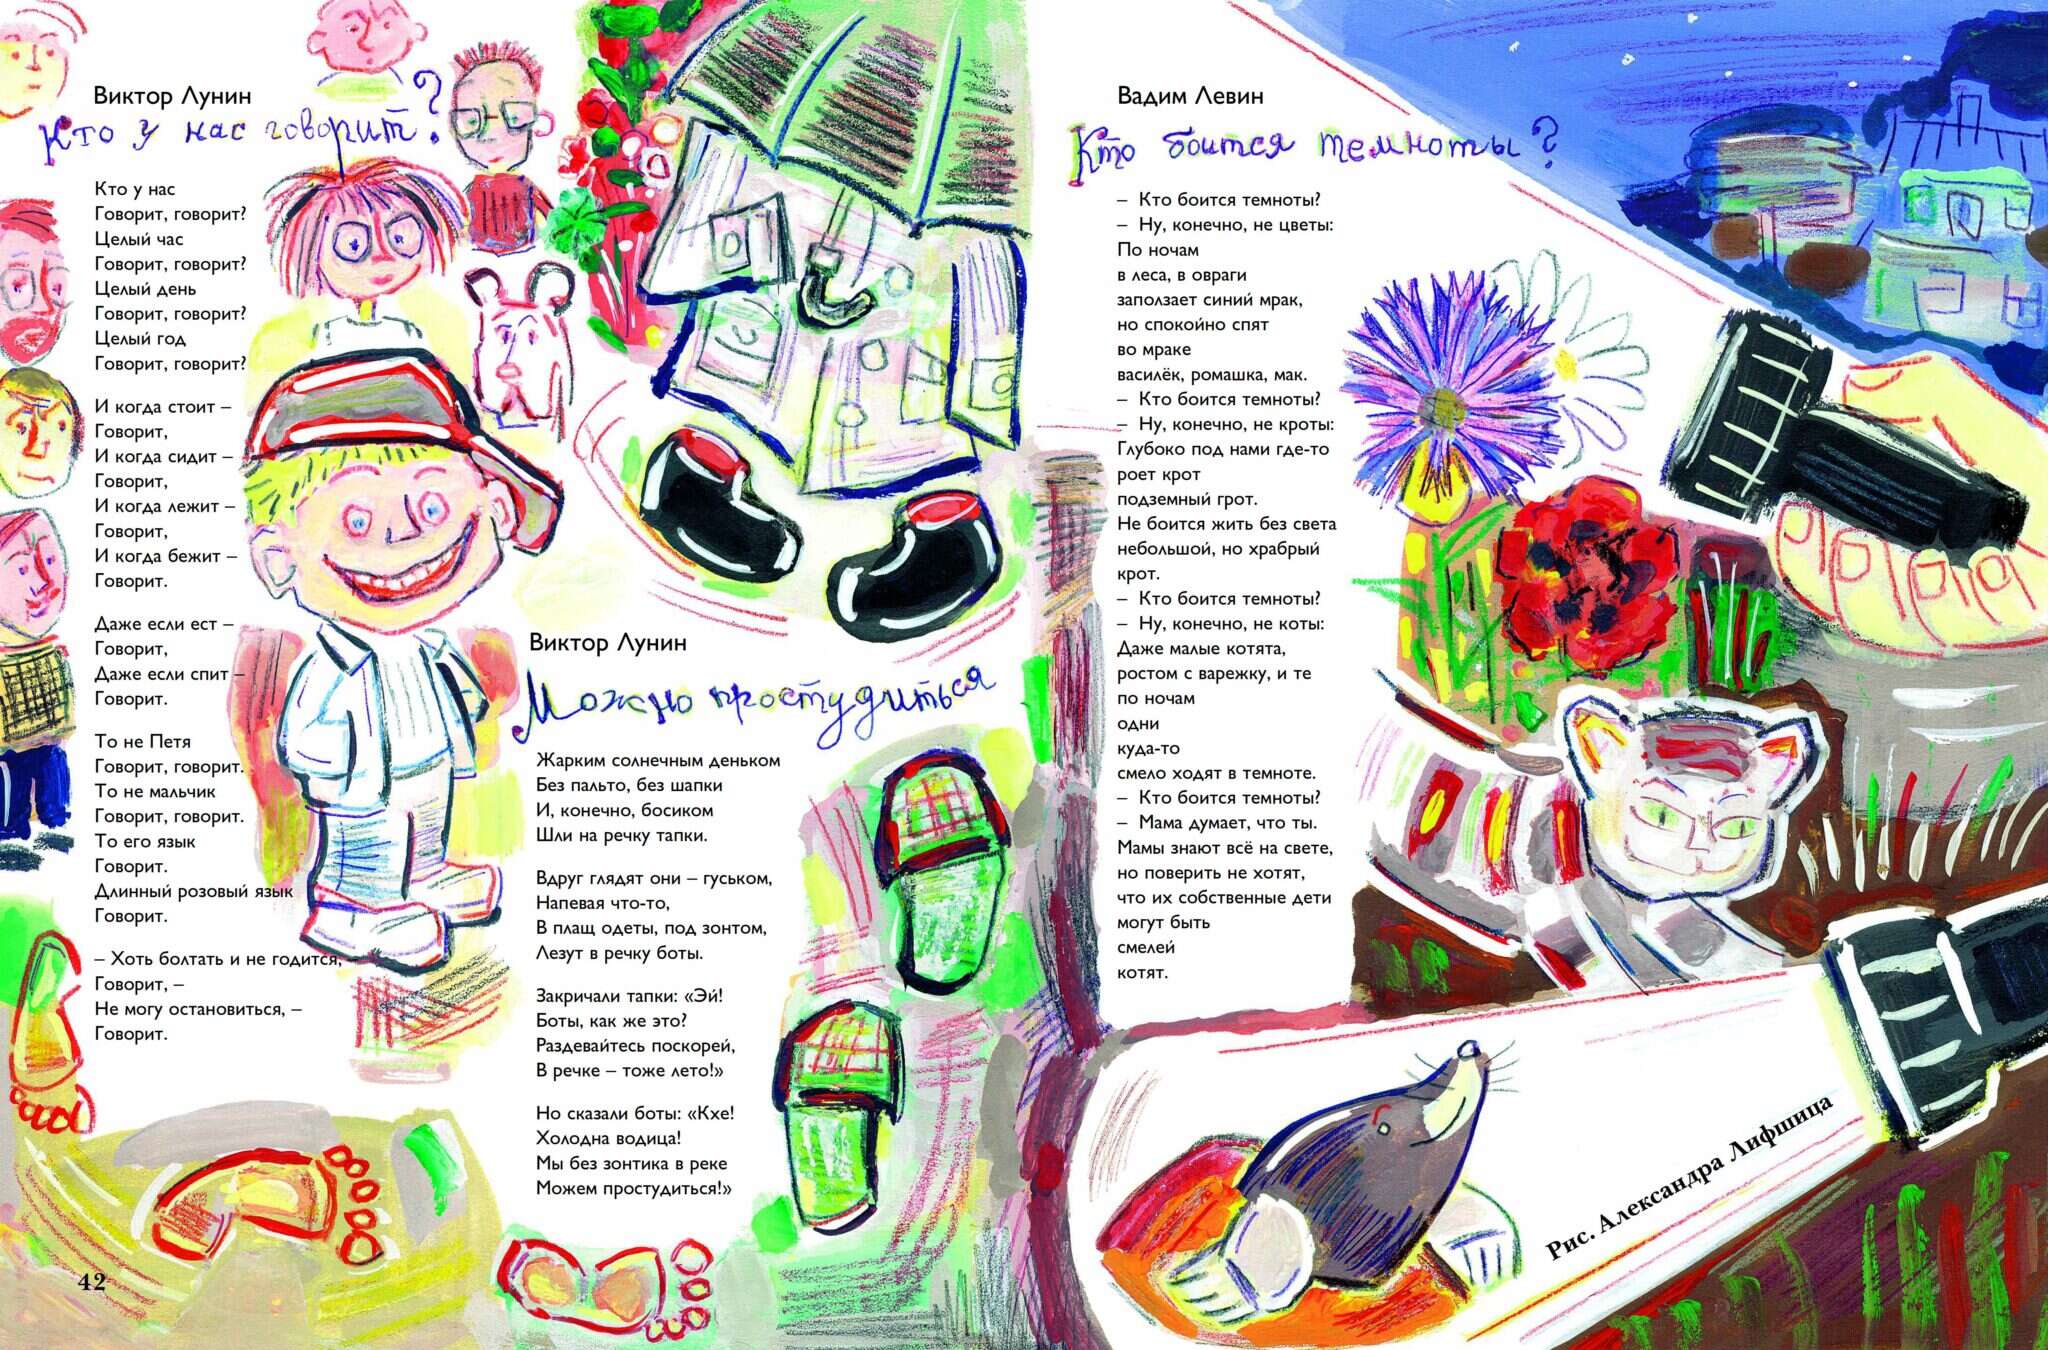 Виктор Лунин
Кто у нас говорит?
Кто у нас
Говорит, говорит?
Целый час
Говорит, говорит?
Целый день
Говорит, говорит?
Целый год
Говорит, говорит?
И когда стоит –
Говорит,
И когда сидит –
Говорит,
И когда лежит –
Говорит,
И когда бежит –
Говорит.
Даже если ест –
Говорит,
Даже если спит –
Говорит.
То не Петя
Говорит, говорит.
То не мальчик
Говорит, говорит.
То его язык
Говорит.
Длинный розовый язык
Говорит.
– Хоть болтать и не годится,
Говорит, –
Не могу остановиться, –
Говорит.
42
Виктор Лунин
Можно простудиться
Жарким солнечным деньком
Без пальто, без шапки
И, конечно, босиком
Шли на речку тапки.
Вдруг глядят они – гуськом,
Напевая что-то,
В плащ одеты, под зонтом,
Лезут в речку боты.
Закричали тапки: «Эй!
Боты, как же это?
Раздевайтесь поскорей,
В речке – тоже лето!»
Но сказали боты: «Кхе!
Холодна водица!
Мы без зонтика в реке
Можем простудиться!»
Вадим Левин
Кто боится темноты?
– Кто боится темноты?
– Ну, конечно, не цветы:
По ночам
в леса, в овраги
заползает синий мрак,
но спокойно спят
во мраке
василёк, ромашка, мак.
– Кто боится темноты?
– Ну, конечно, не кроты:
Глубоко под нами где-то
роет крот
подземный грот.
Не боится жить без света
небольшой, но храбрый
крот.
– Кто боится темноты?
– Ну, конечно, не коты:
Даже малые котята,
ростом с варежку, и те
по ночам
одни
куда-то
смело ходят в темноте.
– Кто боится темноты?
– Мама думает, что ты.
Мамы знают всё на свете,
но поверить не хотят,
что их собственные дети
могут быть
смелей
котят.
Рис. Александра Лифшица